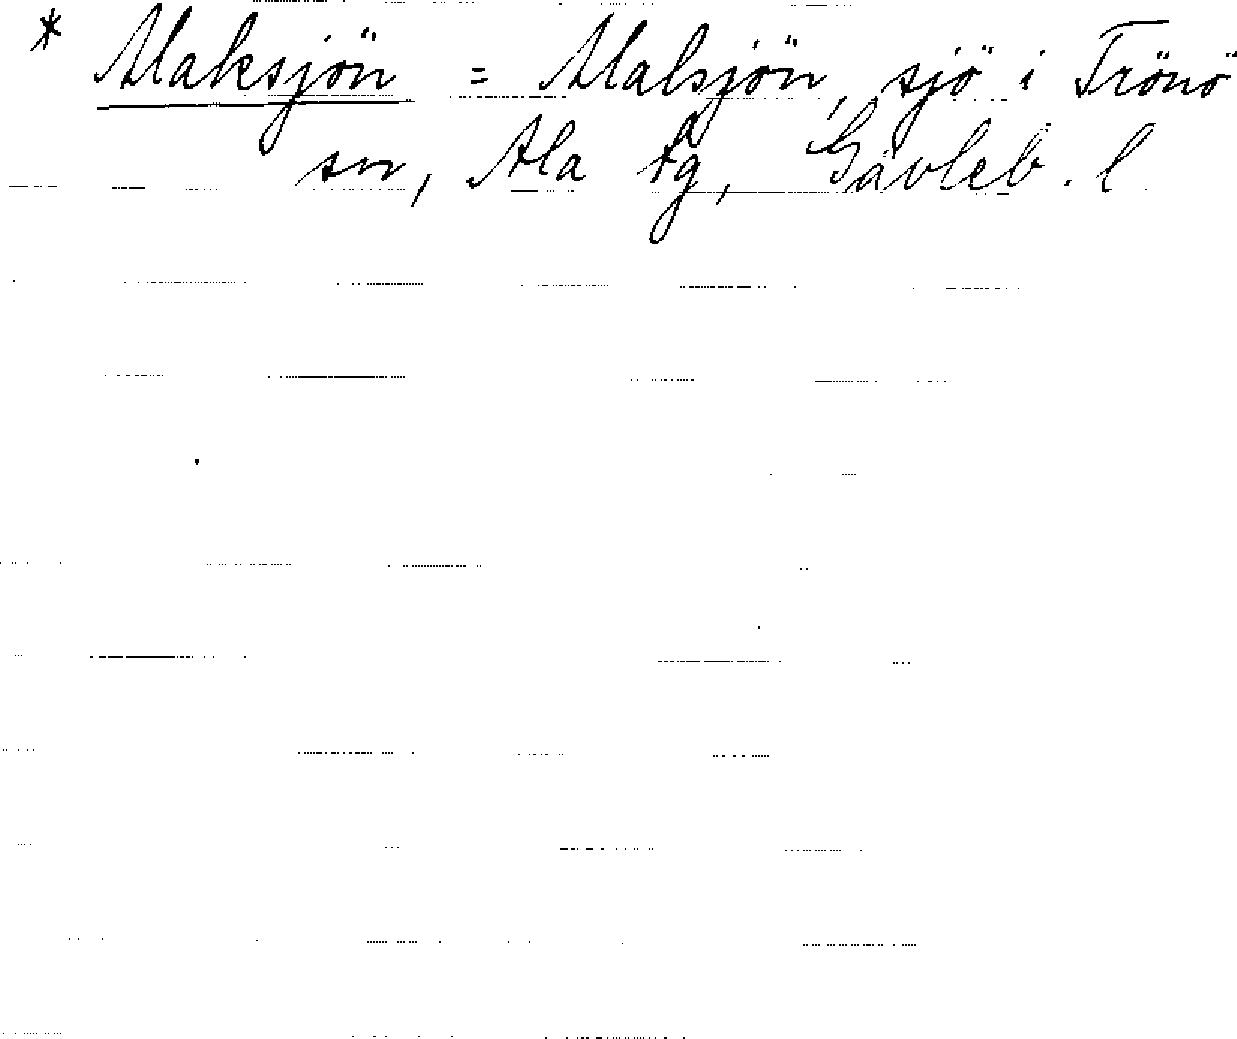 * Maksjön = Malsjön, sjö i Trönö
sn, Ala tg, Gävleb. l